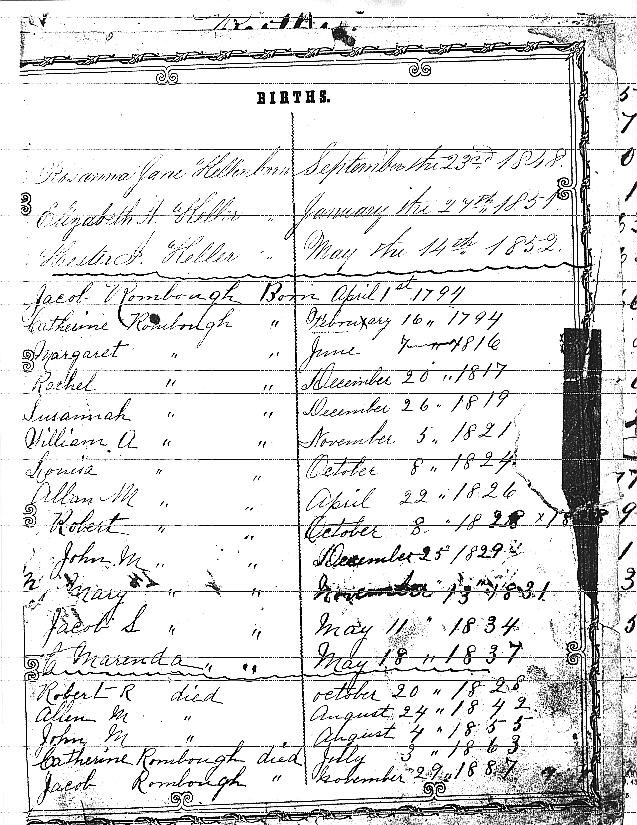 BIRTHS.
Rosanna Jane Keller born September the 23rd 1848.
Elizabeth A Keller " January the 27th 1851
Keller " May the 14th 1852.
Jacob Rombough Born April 1st 1794
Catherine Rombough " Febouary 16 " 1794
Margaret " " June 7 1816
Rachel " " December 20 " 1817
Susannah " " December 26 " 1819
William A " " November 5 " 1821
Louisa " " October 8 " 1824
Allan M " " April 22 " 1826
Robert " " October 8 " 1828
John M " " December 25 1829
Mary " " November 13 " 1831
Jacob S " " May 11 " 1834
C Marenda " " May 18 " 1837
Robert R died october 20 " 1828
Allen M " August 24 " 1842
John M " August 4 " 1855
Catherine Rombough died July 3 " 1863
Jacob Rombough " November 29 " 1887